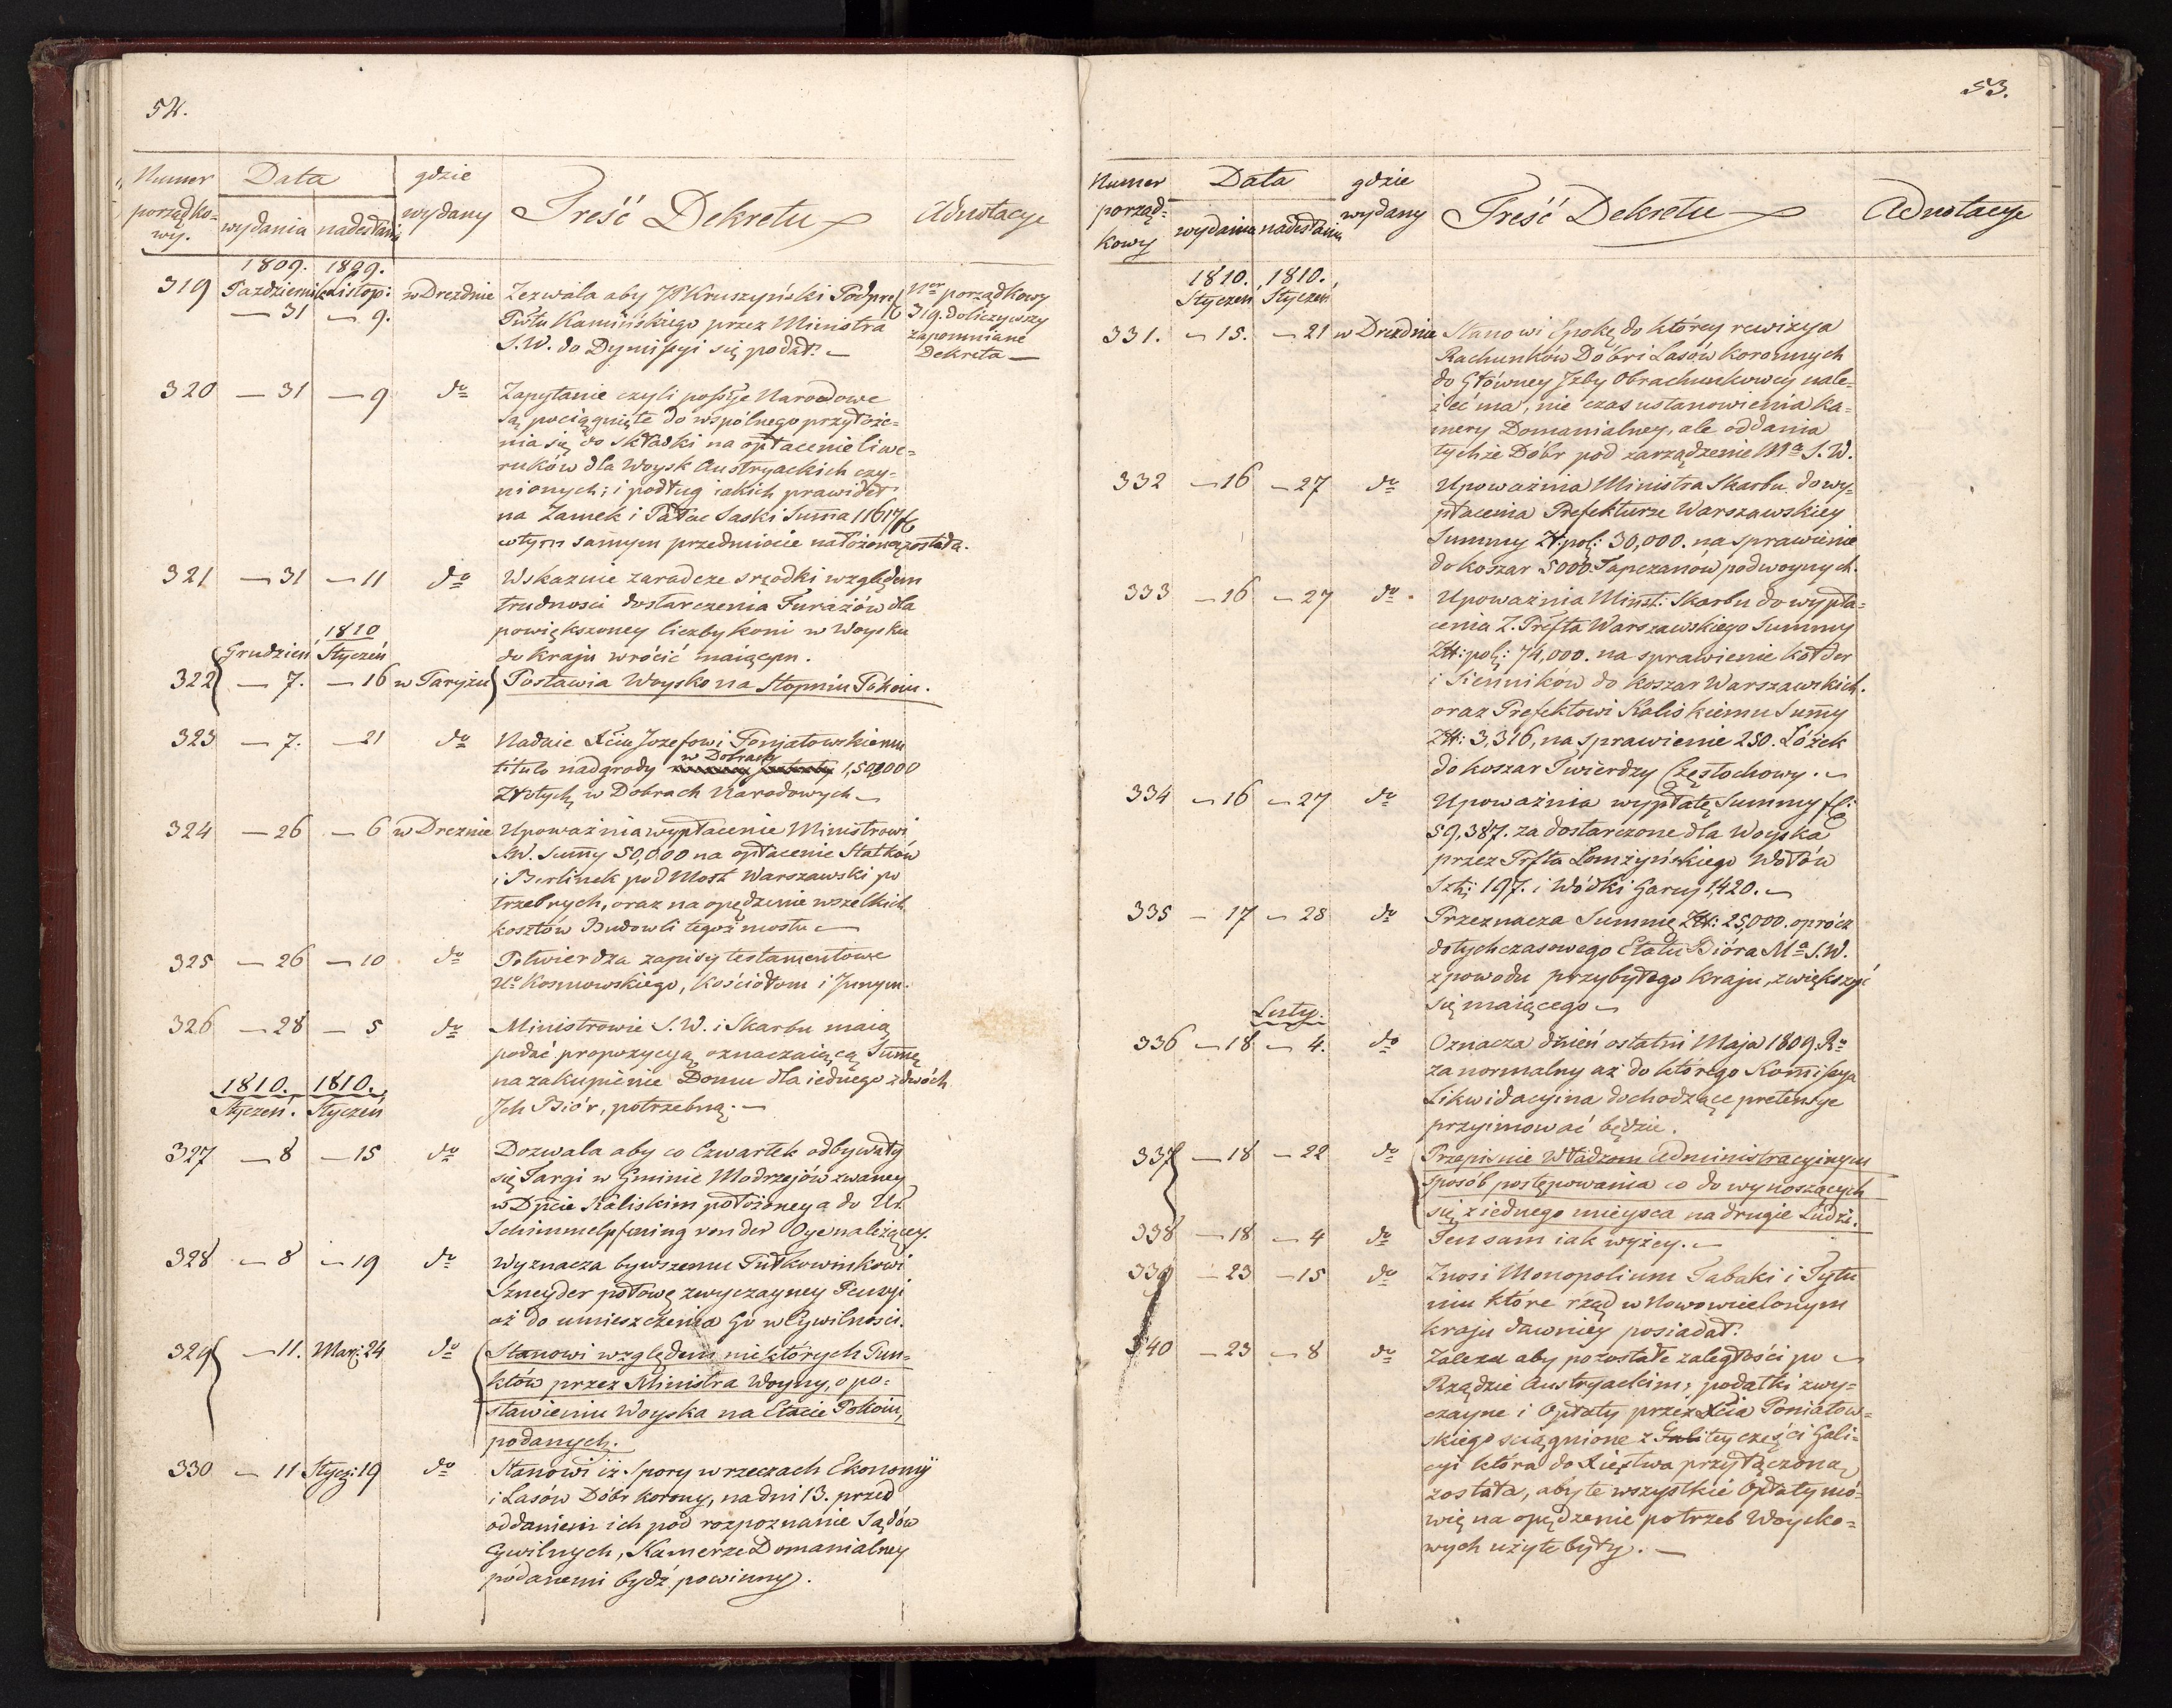 52.
Numer Data gdzie
porządko= wydania nadesłania wydany Treść Dekretu Adnotacye
wy.
1809. 1809.
319 Październik Listop: w Dreźnie Zezwala aby JP Kruszyński Podpre Ner porządkowy
— 31 — 9. Pwtu Kamińskiego przez Ministra 319. doliczywszy
S. W. do Dymissyi się podał. — zapomniane
Dekreta —
320 — 31 — 9 do Zapytanie czyli possyje Narodowe
są pociągnięte do wspólnego przyłoże-
nia się do składki na opłacenie liwe-
runków dla Woysk Austryackich czy-
nionych; i podług iakich prawideł
na Zamek i Pałac Saski Summa 11617
w tym samym przedmiocie nałożoną została.
321 — 31 — 11 do Wskazuie zaradcze srzodki względem
trudnosci dostarczenia Furażów dla
1810 powiększoney liczby koni w Woysku
Grudzień Styczeń do kraju wrócić maiącym.
322 — 7. — 16 w Paryżu Postawia Woysko na Stopniu Pokoiu.
323 — 7. — 21 do Nadaie Xciu Jozefowi Ponjatowskiemu
w Dobrach
titulo nadgrody 1,500000
Złotych w Dobrach Narodowych —
324 — 26 — 6 w Dreznie Upoważnia wypłacenie Ministrowi
S.W. Summy 50,000 na opłacenie Statków
i Berlinek pod Most Warszawski po
trzebnych, oraz na opędzenie wszelkich
kosztów Budowli tegoż mostu —
325 — 26 — 10 do Potwierdza zapisy testamentowe
Uo Kosmowskiego, Kościołom i Jnnym.
326 — 28 — 5 do Ministrowie S. W. i Skarbu maią
podać propozycyą oznaczaiącą Summę
1810. 1810. na zakupienie Domu dla iednego z dwóch
Styczeń. Styczeń Jch Biór, potrzebną. —
327 — 8 — 15 do Dozwala aby co Czwartek odbywały
się Targi w Gminie Modrzejów zwaney
w Dpcie Kaliskim położoney a do Ur.
Schimmelpfening von der Oye należącey.
328 — 8 — 19 do Wyznacza bywszemu Pułkownikowi
Szneyder połowę zwyczayney Pensyi
aż do umieszczenia Go w Cywilności.
329 — 11. Marz: 24 do Stanowi względem niektórych Pun-
któw przez Ministra Woyny, o po=
stawieniu Woyska na Etacie Pokoiu,
podanych.
330 — 11 Stycz: 19 do Stanowi iż Spory w rzeczach Ekonomÿ
i Lasów Dóbr korony, na dni 13. przed
oddaniem ich pod rozpoznanie Sądów
Cywilnych, Kamerze Domanialney
podanemi bydź powinny.
53.
Numer Data gdzie
porząd= wydania nadesłania wydany Treść Dekretu Adnotacye
kowy
1810. 1810.
Styczeń Styczeń
331. — 15. — 21 w Dreźnie Stanowi Epokę do którey rewizya
Rachunków Dóbr i Lasów koronnych
do Główney Jzby Obrachunkowey nale-
żeć ma, nie czas ustanowienia ka=
mery Domanialney, ale oddania
tychże Dóbr pod zarządzenie Ma S. W.
332 — 16 — 27 do Upoważnia Ministra Skarbu do wy=
płacenia Prefekturze Warszawskiey
Summy Zł: pol: 30,000. na sprawienie
do koszar 5000 Tapczanów podwoynych.
333 — 16 — 27 do Upoważnia Minst: Skarbu do wypła=
cenia Z. Prefta Warszawskiego Summy
Złł: pol: 74,000. na sprawienie kołder
i Sienników do koszar Warszawskich.
oraz Prefektowi Kaliskiemu Summy
Złł: 3,316, na sprawienie 250. Łóżek
do koszar Twierdzy Częstochowy. —
334 — 16 — 27 do Upoważnia wypłatę Summy fl:
59,387. za dostarczone dla Woyska
przez Prfta Łomżyńskiego Wołów
Szt: 197. i Wódki Garcy 1,420. —
335 — 17 — 28 do Przeznacza Summę Złł: 25,000. oprócz
dotychczasowego Etatu Bióra Ma S. W.
z powodu przybyłego kraju, zwiększyć
Luty. się maiącego —
336 — 18 — 4. do Oznacza dzień ostatni Maja 1809. Ro
za normalny aż do którego Kommissya
Likwidacyina dochodzące pretensye
przyimować będzie.
337 — 18 — 22 do Przepisuie Władzom Administracyinym
sposób postępowania co do wynoszących
się z iednego mieysca na drugie Ludzi.
338 — 18 — 4 do Ten sam iak wyżey. —
339 — 23 — 15 do Znosi Monopolium Tabaki i Tytu
niu które rząd w Nowowcielonym
kraju dawniey posiadał.
340 — 23 — 8 do Zaleca aby pozostałe zaległości po —
Rządzie Austryackim, podatki zwy=
czayne i Opłaty przez Xcia Poniatow=
skiego sciągnione z Gali tey części Gali=
cyi która do Xięstwa przyłączona
została, aby te wszystkie Opłaty mó=
wię na opędzenie potrzeb Woysko=
wych użyte były. —